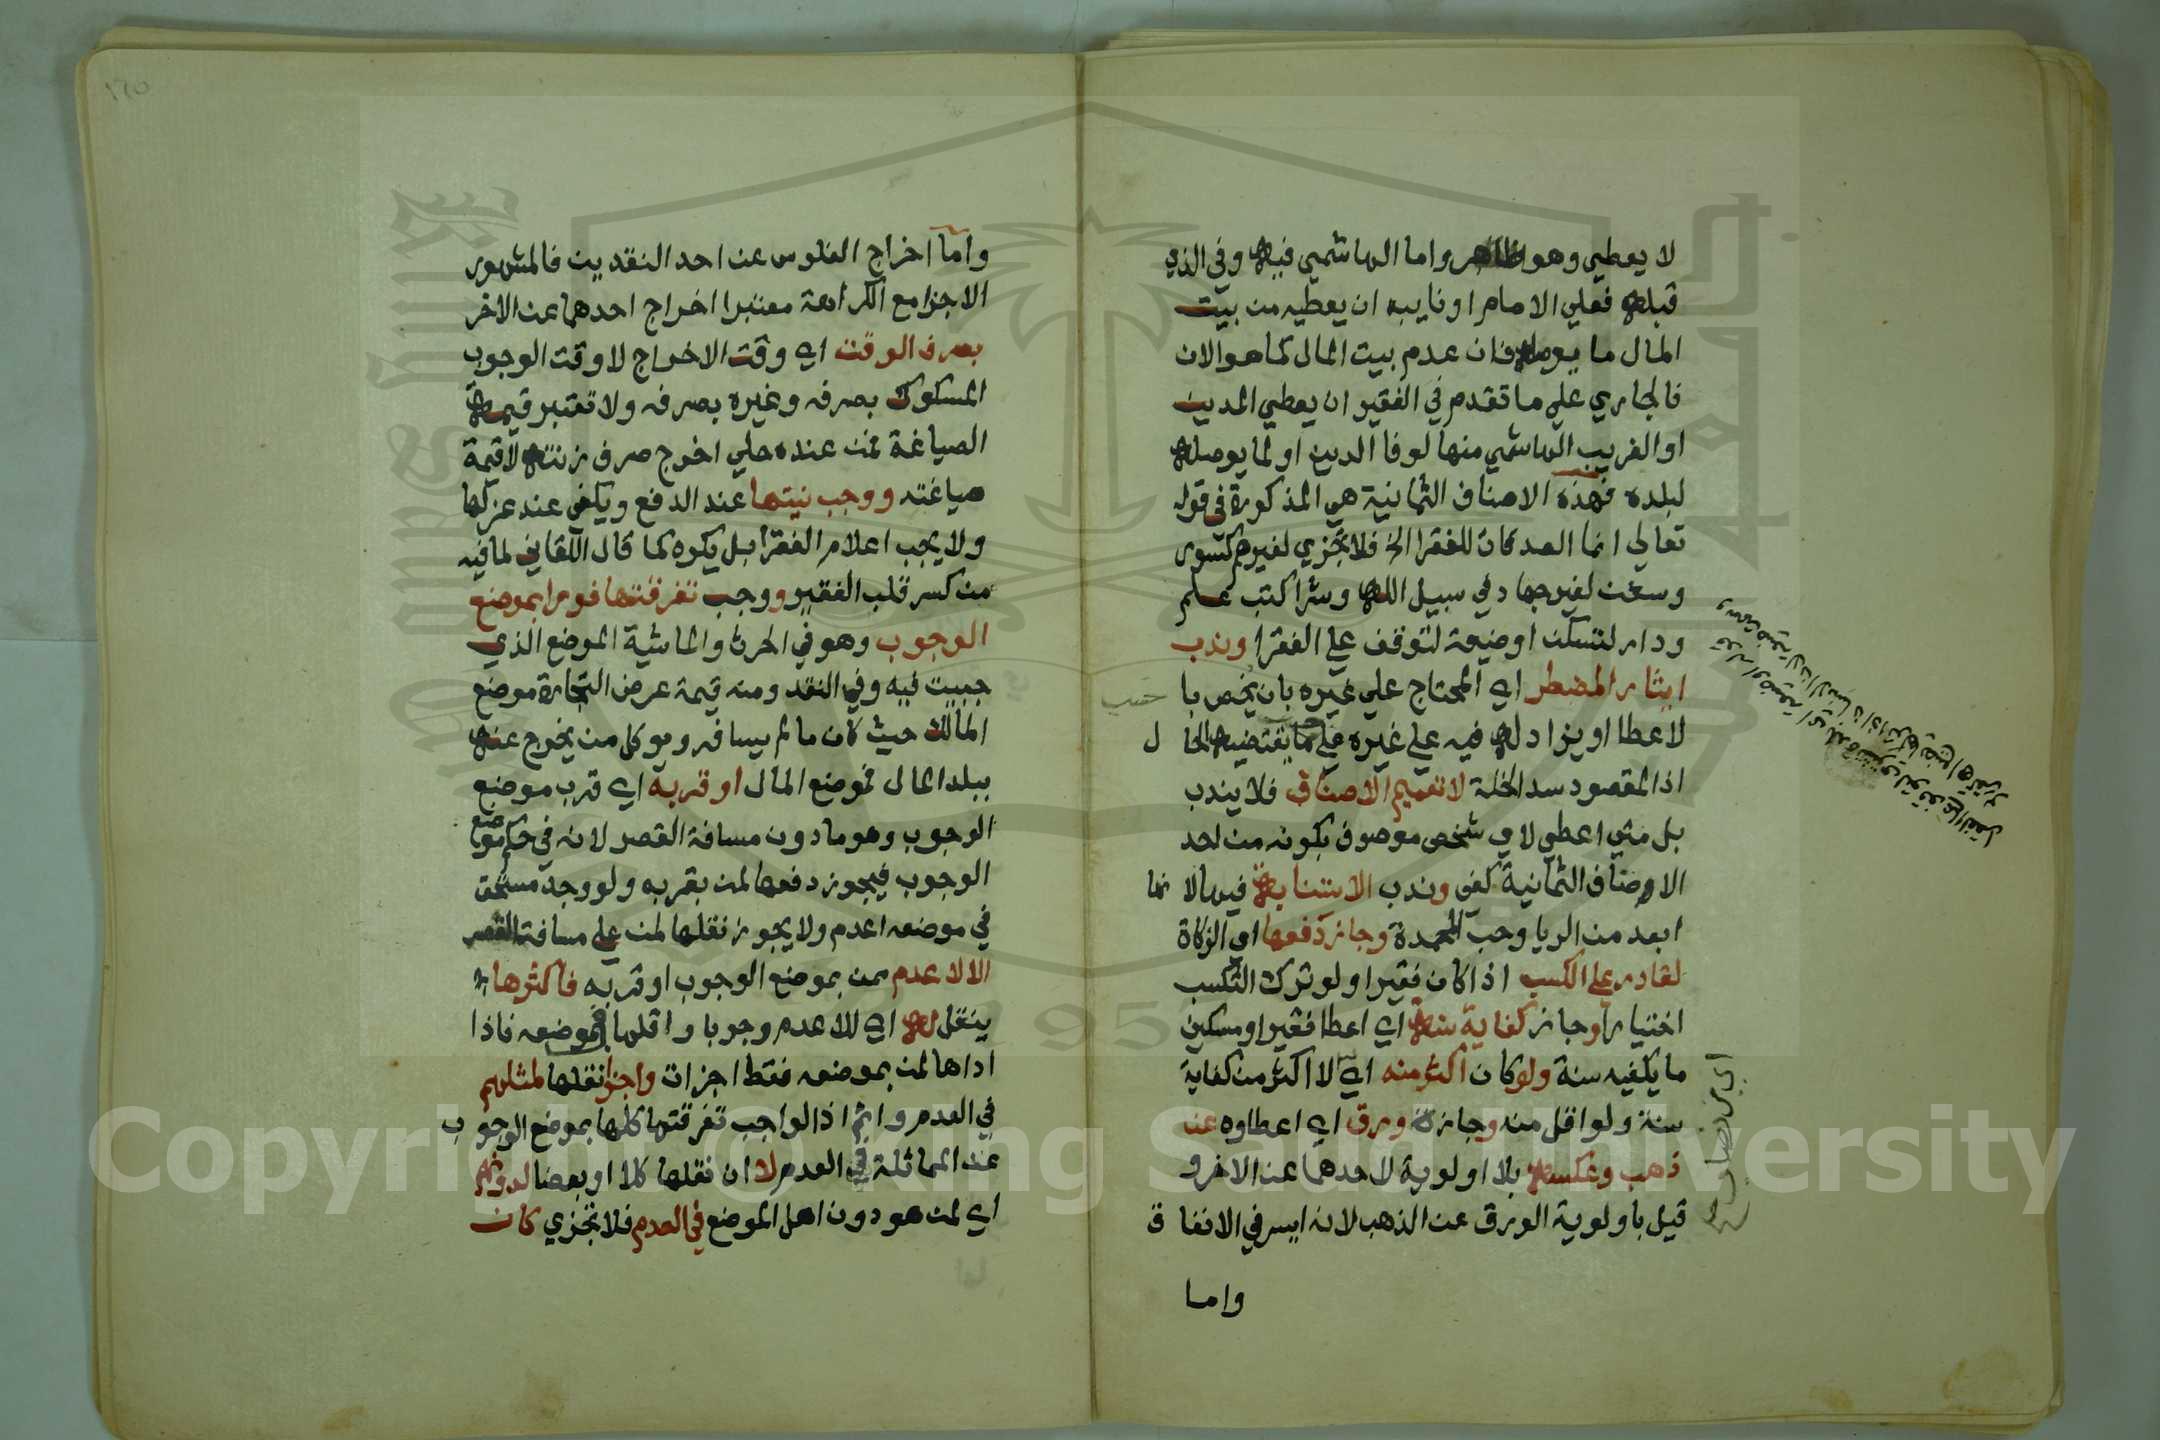 لا يعطي وهو ظاهر واما الهاشمي فبه وفي الذي
قبله فعلي الامام او نايبه ان يعطيه من بيت
المال ما يوصله فان عدم بيت المال كما هو الان
فالجاري علي ما تقدم في الفقير ان يعطي المدين
او الغريب الهاشمي منها لوفا الدين او لما يوصله
لبلده فهذه الاصناف الثمانية هي المذكورة في قوله
تعالي انما الصدقات للفقرا الخ فلا تجزي لغيرهم كسور
وسفن لغير جهاد في سبيل الله وشرا كتب علم
ودار لتسكن او ضيعة لتوقف علي الفقرا وندب
ايثار المضطر اي المحتاج علي غيره بان يخص با
لاعطا او يزاد له فيه علي غيره علي ما يقتضيه الحال
اذ المقصود سد الخلة لا تعميم الاصناف فلا يندب
بل متي اعطي لاي شخص موصوف بكونه من احد
الاوصاف الثمانية كفي وندب الاستنابة فيها لانها
ابعد من الريا وحب المحمدة وجاز دفعها اي الزكاة
لقادر علي الكسب اذا كان فقيرا ولو ترك التكسب
اختيارا وجاز كفاية سنة اي اعطا فقير او مسكين
ما يكفيه سنة ولو كان اكثر منه اي لا اكثر من كفاية
سنة ولو اقل منه وجاز ورق اي اعطاوه عن
ذهب وعكسه بلا اولوية لاحدهما عن الاخر و
قيل باولوية الورق عن الذهب لانه ايسر في الانفاق
واما
واما اخراج الفلوس عن احد النقدين فالمشهور
الاجزا مع الكراهة معتبرا اخراج احدهما عن الاخر
بصرف الوقت اي وقت الاخراج لا وقت الوجوب
المسكوك بصرفه وغيره بصرفه ولا تعتبر قيمة
الصياغة فمن عنده حلي اخرج صرف زنته لا قيمة
صياغته ووجب نيتها عند الدفع ويكفي عند عزلها
ولا يجب اعلام الفقرا بل يكره كما قال اللقاني لما فيه
من كسر قلب الفقير ووجب تفرقتها فورا بموضع
الوجوب وهو في الحرث والماشية الموضع الذي
جبيت فيه وفي النقد ومنه قيمة عرض التجارة موضع
المالك حيث كان ما لم يسافر ويوكل من يخرج عنه
ببلد المال فموضع المال او قربه اي قرب موضع
الوجوب وهو ما دون مسافة القصر لانه في حكم موضع
الوجوب فيجوز دفعها لمن بقربه ولو وجد مستحق
في موضعه اعدم ولا يجوز نقلها لمن علي مسافة القصر
الا لاعدم ممن بموضع الوجوب او قربه فاكثرها
ينقل له اي للاعدم وجوبا واقلها في موضعه فاذا
اداها لمن بموضعه فقط اجزات واجزا نقلها لمثلهم
في العدم واثم اذ الواجب تفرقتها كلها بموضع الوجوب
عند المماثلة في العدم لا ان نقلها كلا او بعضا لدونهم
اي لمن هو دون اهل الموضع في العدم فلا تجزي كان